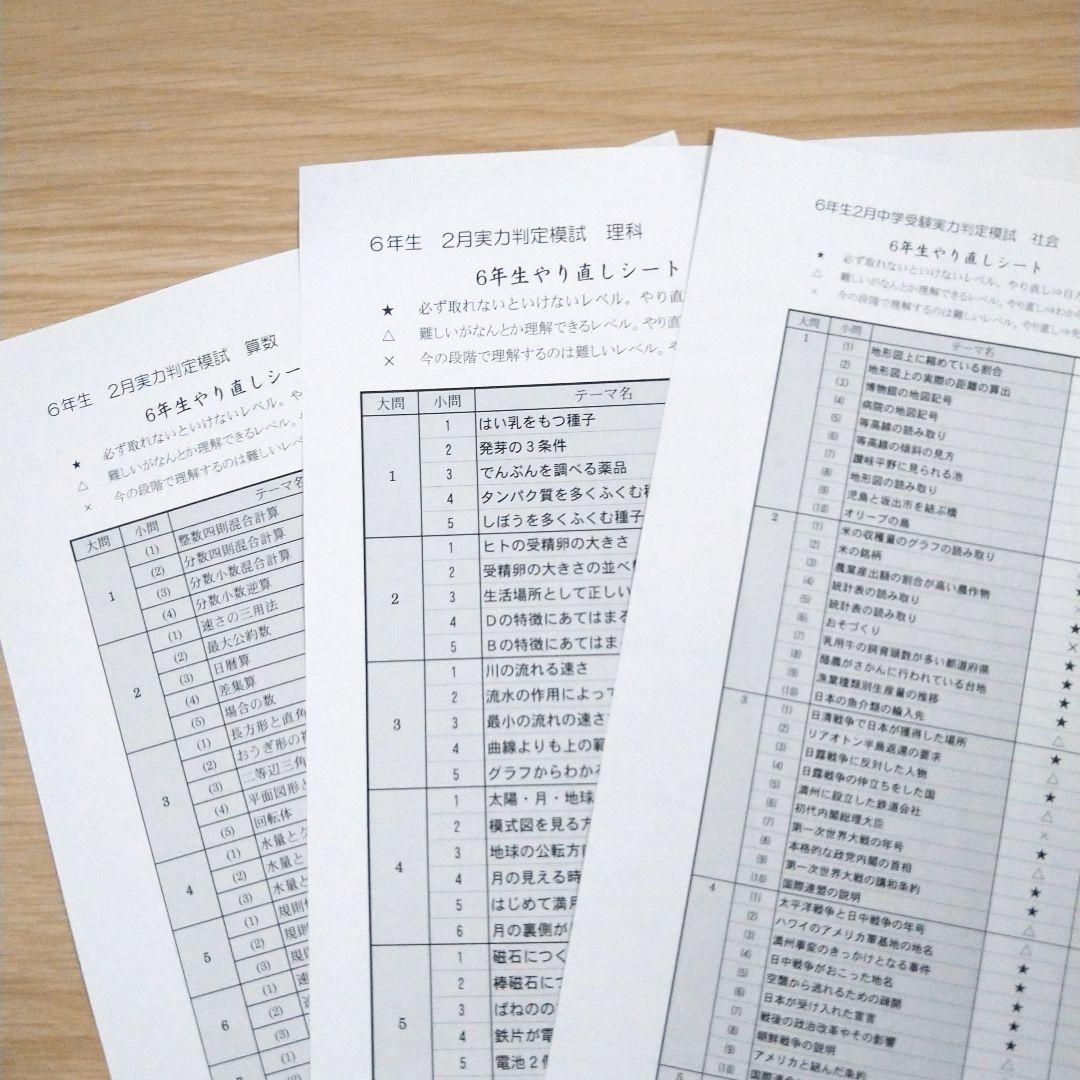 6年生 2月実力判定模試 算数
6年生やり直しシー
★ 必ず取れないといけないレベル。や
△ 難しいがなんとか理解できるレベル。
× 今の段階で理解するのは難しいレベ
大問 小問 テーマ名
1 (1) 整数四則混合計算
(2) 分数四則混合計算
(3) 分数小数混合計算
(4) 分数小数逆算
2 (1) 速さの三用法
(2) 最大公約数
(3) 日暦算
(4) 差集算
(5) 場合の数
3 (1) 長方形と直角
(2) おうぎ形の
(3) 二等辺三角
(4) 平面図形と
(5) 回転体
4 (1) 水量と
(2) 水量と
(3) 水量と
5 (1) 規則
(2) 規則
(3) 規
6 (1) 速
(2)
(3)
(1)
6年生 2月実力判定模試 理科
6年生やり直しシート
★ 必ず取れないといけないレベル。やり直
△ 難しいがなんとか理解できるレベル。やり直
× 今の段階で理解するのは難しいレベル。や
大問 小問 テーマ名
1 1 はい乳をもつ種子
2 発芽の3条件
3 でんぷんを調べる薬品
4 タンパク質を多くふくむ
5 しぼうを多くふくむ種子
2 1 ヒトの受精卵の大きさ
2 受精卵の大きさの並べ
3 生活場所として正しい
4 Dの特徴にあてはまる
5 Bの特徴にあてはまる
3 1 川の流れる速さ
2 流水の作用によって
3 最小の流れの速さ
4 曲線よりも上の範
5 グラフからわかる
4 1 太陽・月・地球
2 模式図を見る方
3 地球の公転方向
4 月の見える時
5 はじめて満月
6 月の裏側が
5 1 磁石につく
2 棒磁石に
3 ばねのの
4 鉄片が電
5 電池2個
6年生2月中学受験実力判定模試 社会
6年生やり直しシート
★ 必ず取れないといけないレベル、やり直し⇒自力
△ 難しいがなんとか理解できるレベル、やり直し⇒わか
× 今の段階で理解するのは難しいレベル。やり直し⇒先
大問 小問 テーマ名
1 (1) 地形図上に縮めている割合
(2) 地形図上の実際の距離の算出
(3) 博物館の地図記号
(4) 病院の地図記号
(5) 等高線の読み取り
(6) 等高線の傾斜の見方
(7) 讃岐平野に見られる池
(8) 地形図の読み取り
(9) 児島と坂出市を結ぶ橋
(10) オリーブの島
2 (1) 米の収穫量のグラフの読み取り
(2) 米の銘柄
(3) 農業産出額の割合が高い農作物
(4) 統計表の読み取り
(5) 統計表の読み取り
(6) おそづくり
(7) 乳用牛の飼育頭数が多い都道府県
(8) 酪農がさかんに行われている台地
(9) 漁業種類別生産量の推移
(10) 日本の魚介類の輸入先
3 (1) 日清戦争で日本が獲得した場所
(2) リアオトン半島返還の要求
(3) 日露戦争に反対した人物
(4) 日露戦争の仲立ちをした国
(5) 満州に設立した鉄道会社
(6) 初代内閣総理大臣
(7) 第一次世界大戦の年号
(8) 本格的な政党内閣の首相
(9) 第一次世界大戦の講和条約
(10) 国際連盟の説明
4 (1) 太平洋戦争と日中戦争の年号
(2) ハワイのアメリカ軍基地の地名
(3) 満州事変のきっかけとなる事件
(4) 日中戦争がおこった地名
(5) 空襲から逃れるための疎開
(6) 日本が受け入れた宣言
(7) 戦後の政治改革やその影響
(8) 朝鮮戦争の説明
(9) アメリカと結んだ条約
(10) 国際連合
5